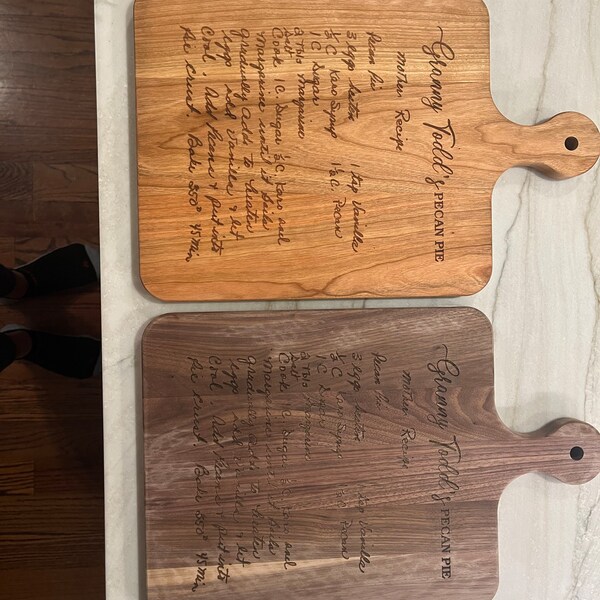 Granny Todd's PECAN PIE
Mother Recipe
Pecan Pie
3 eggs beaten 1 tsp Vanilla
½ C Karo Syrup 1½ C. Pecan
1 C Sugar
2 Tbls Margarine
Cook 1 C. Sugar ½ C. Karo and
margarine until it boils
gradually adds to beaten
eggs add Vanilla & let
Cool. Add Pecans & put into
Pie crust. Bake 350° 45 min
Granny Todd's PECAN PIE
Mother Recipe
Pecan Pie
3 eggs beaten 1 tsp Vanilla
½ C Karo Syrup 1½ C. Pecan
1 C Sugar
2 Tbls Margarine
Cook 1 C. Sugar ½ C. Karo and
margarine until it boils
gradually adds to beaten
eggs add Vanilla & let
Cool. Add Pecans & put into
Pie crust. Bake 350° 45 min